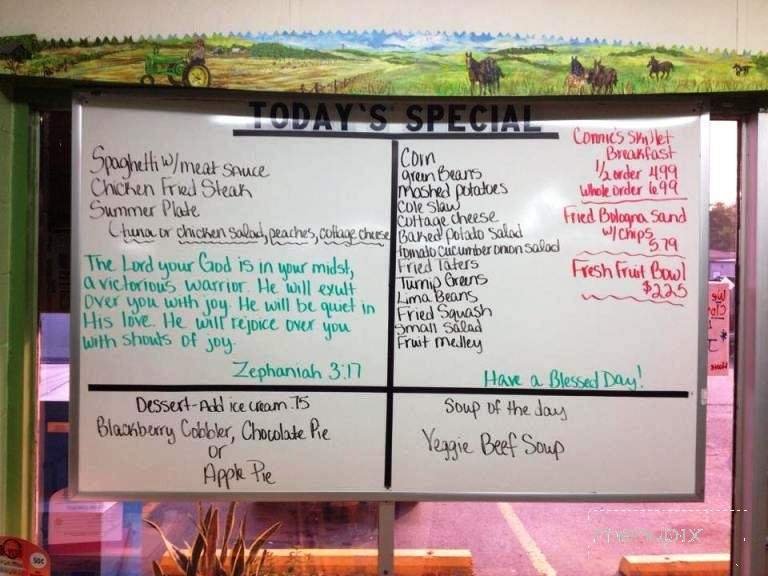 TODAY'S SPECIAL
Spaghetti w/meat sauce
Chicken Fried Steak
Summer Plate
(tuna or chicken salad, peaches, cottage cheese
The Lord your God is in your midst,
a victorious warrior. He will exult
over you with joy. He will be quiet in
His love. He will rejoice over you
with shouts of joy.
Zephaniah 3:17
Corn
green Beans
mashed potatoes
Cole slaw
Cottage cheese
Baked potato salad
tomato cucumber onion salad
Fried Taters
Turnip Greens
Lima Beans
Fried Squash
Small salad
Fruit medley
Connie's Skillet
Breakfast
1/2 order 4.99
Whole order 6.99
Fried Bologna Sand
w/chips
5.79
Fresh Fruit Bowl
$2.25
Have a Blessed Day!
Dessert-Add ice cream .75
Blackberry Cobbler, Chocolate Pie
or
Apple Pie
Soup of the day
Veggie Beef Soup
50¢
menupix